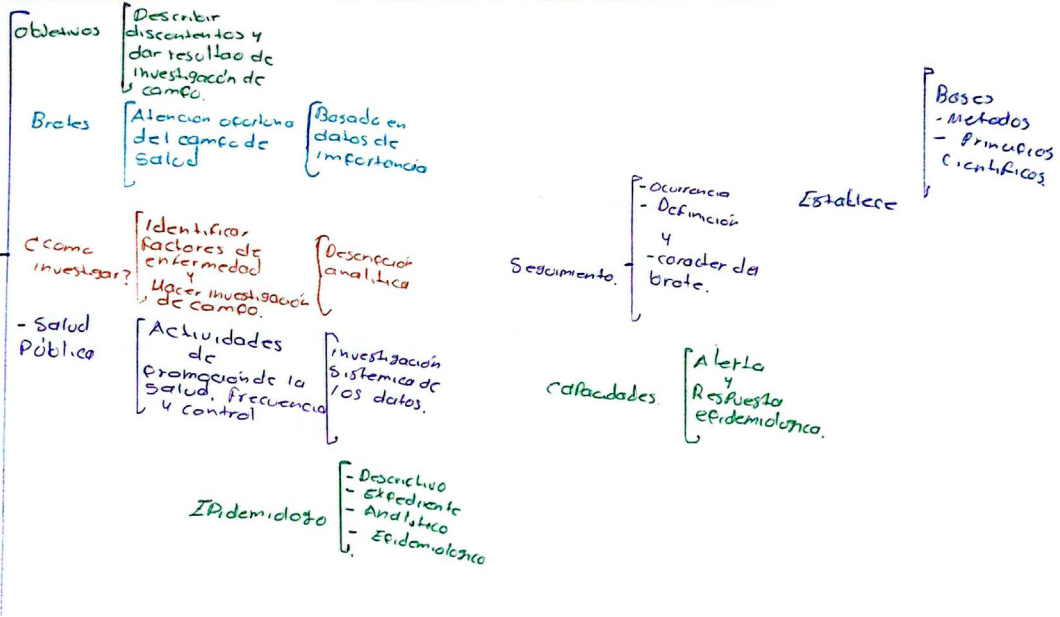 Objetivos
Describir
discontentos y
dar resultao de
investigación de
campo.
Brotes
Atencion oportuna
del campo de
salud
Basado en
datos de
importancia
¿Como
investigar?
Identificar
factores de
enfermedad
y
Hacer investigación
de campo.
Descripción
analitica
- Salud
Pública
Actividades
de
promoción de la
salud, frecuencia
y control
investigación
sistemica de
los datos.
IPidemiologo
- Descriptivo
- Expediente
- Analitico
- Epidemiologico
Seguimiento.
- ocurrencia
- Definición
y
- caracter del
brote.
Establece
Bases
- Metodos
- Principios
Cientificos.
Capacidades.
Alerta
y
Respuesta
epidemiologica.